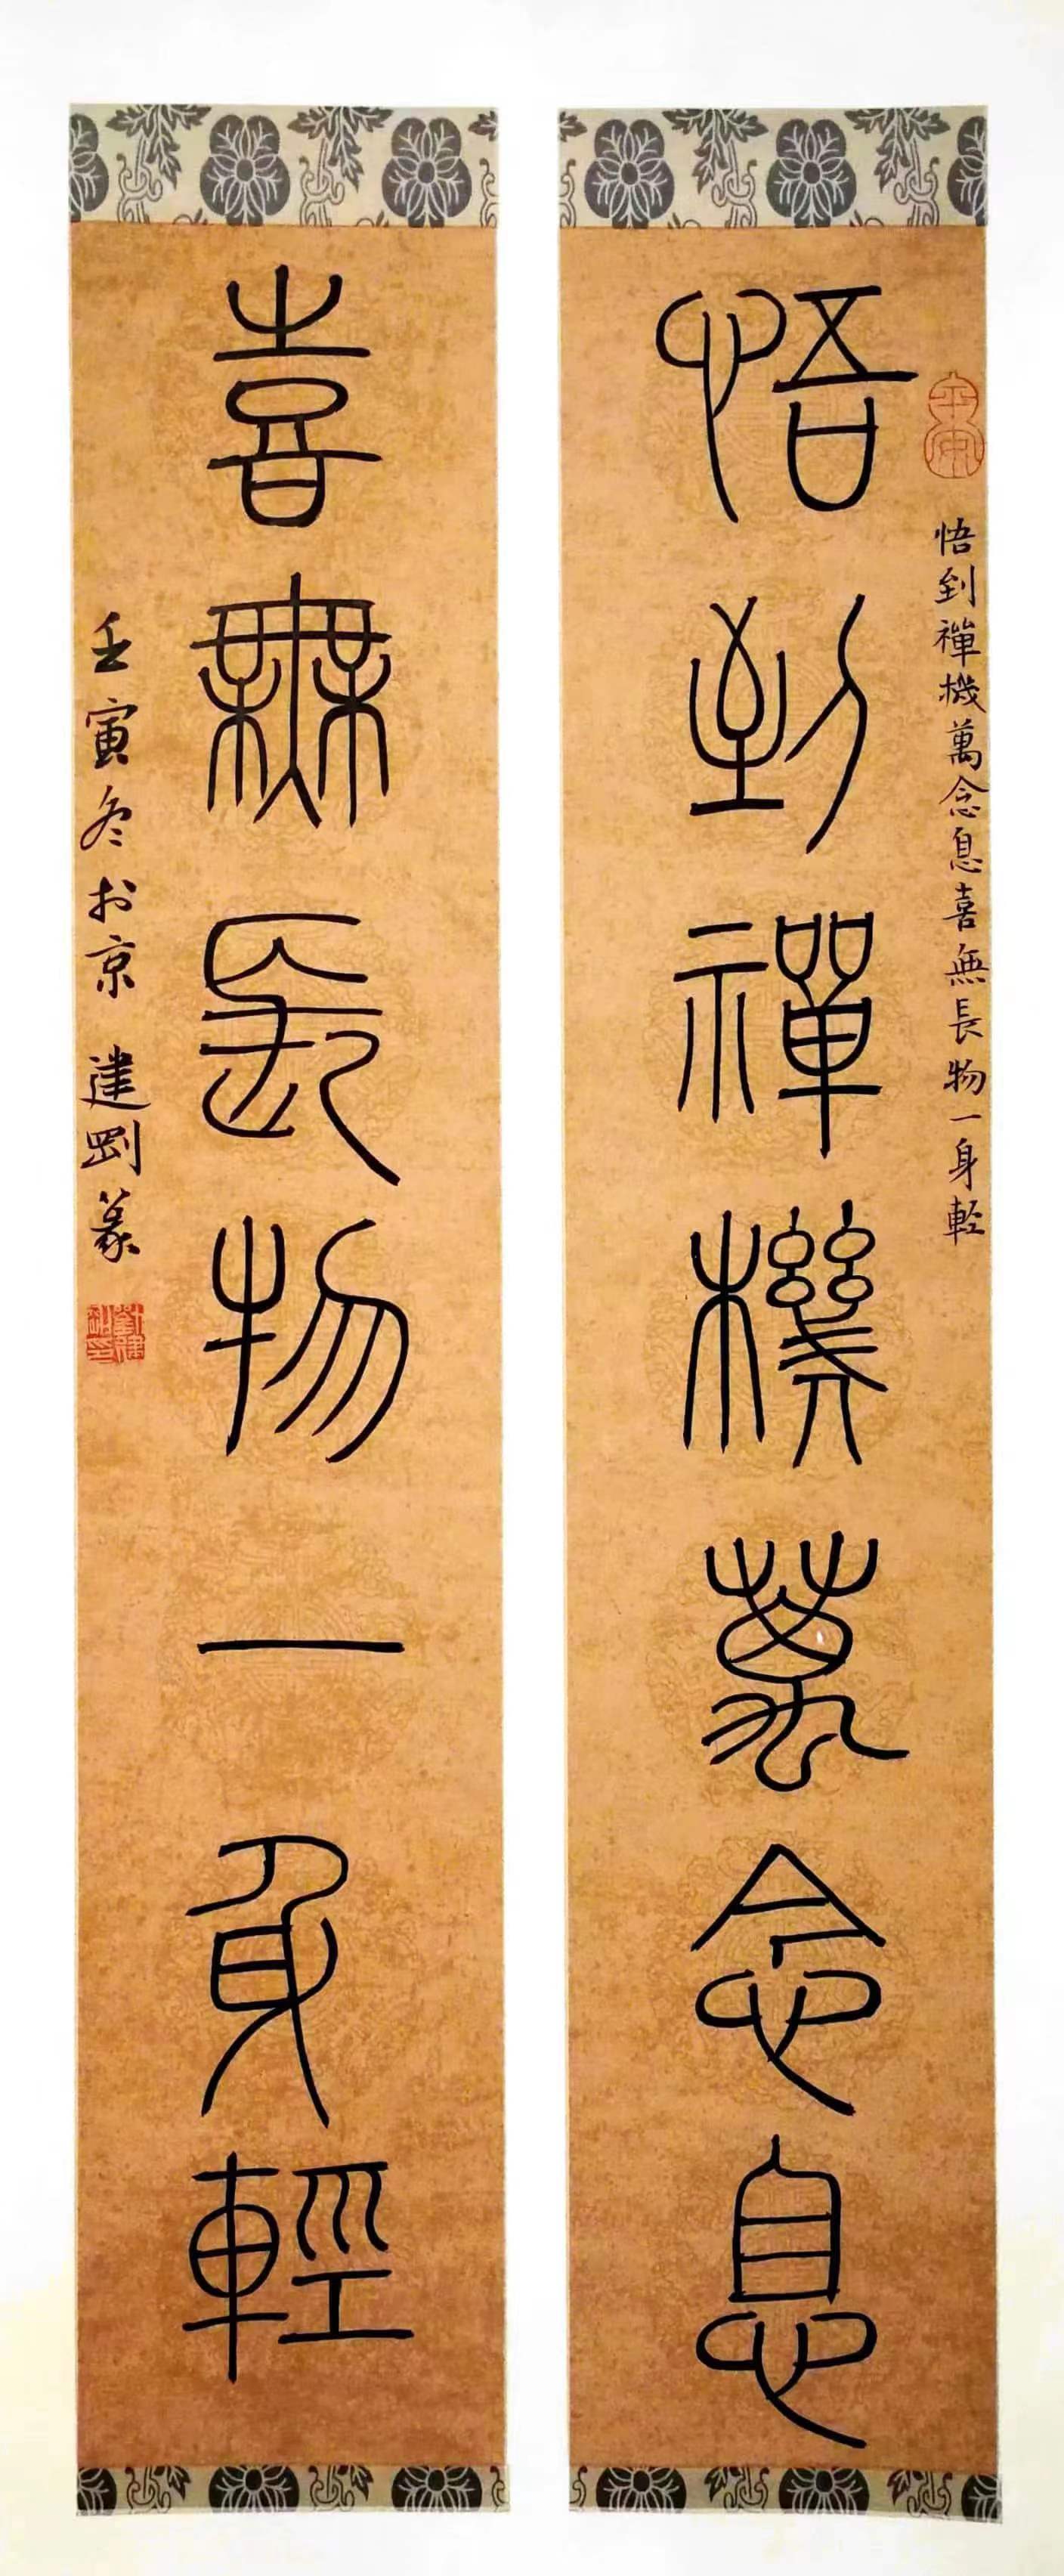 悟到禪機萬念息
悟到禪機萬念息喜無長物一身輕
喜無長物一身輕
壬寅冬於京 建剛篆